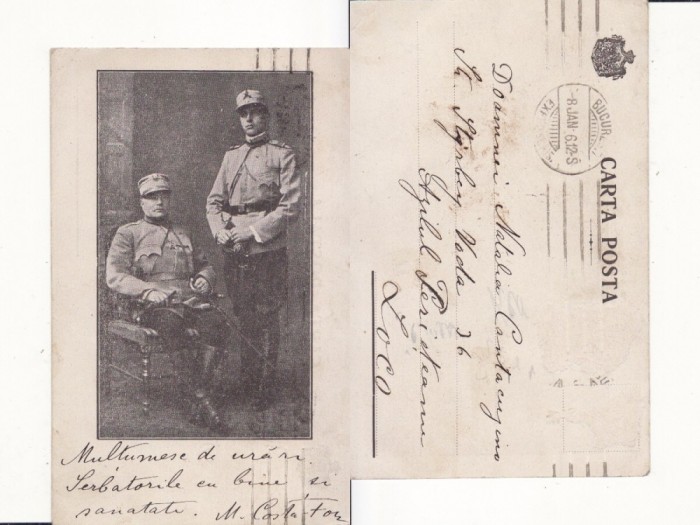 Multumesc de urări.
Serbatorile cu bine si
sanatate. M. Costa-Foru
CARTA POSTA
BUCUR
8 JAN 6.12-S
Doamnei Natalia Cantacuzino
Str. Stirbey Voda 36
Azilul Perideanu
Loco